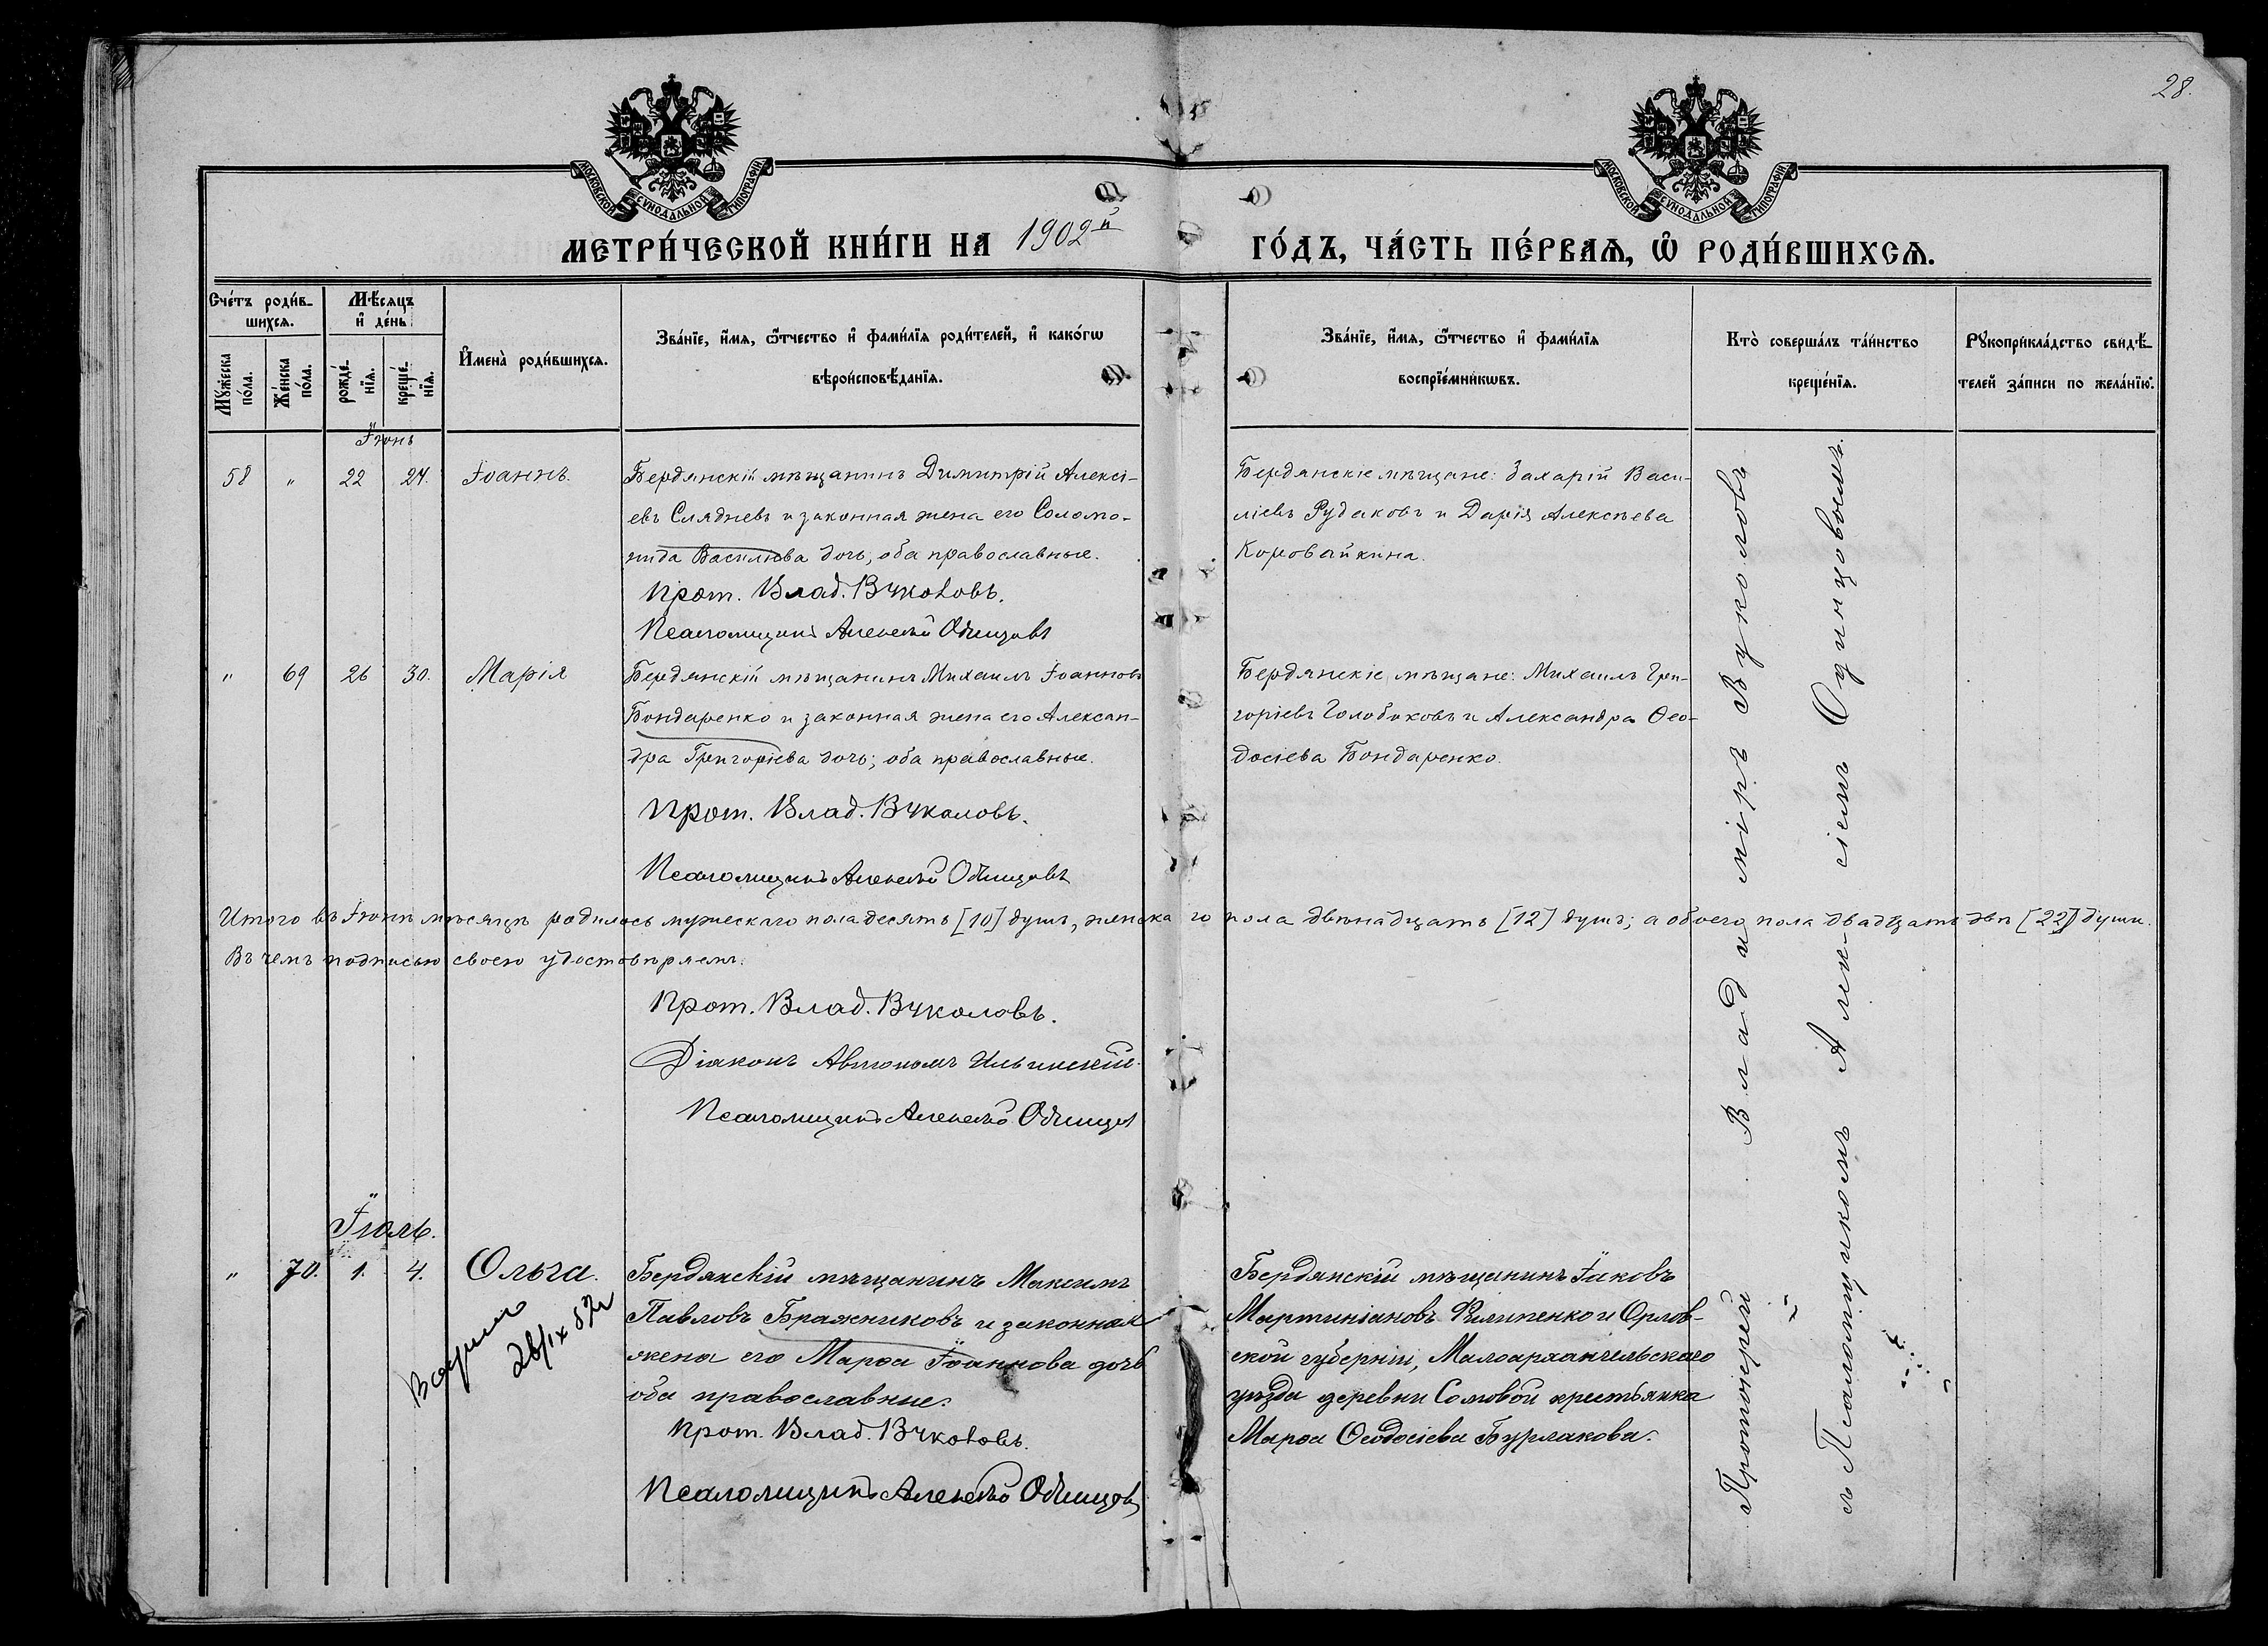 28.
МОСКОВСКОЙ СѴНОДАЛЬНОЙ ТИПОГРАФІИ
МОСКОВСКОЙ СѴНОДАЛЬНОЙ ТИПОГРАФІИ
МЕТРИ́ЧЕСКОЙ КНИ́ГИ НА 1902й ГО́ДЪ, ЧА́СТЬ ПЕ́РВАѦ, Ѡ҆ РОДИ́ВШИХСѦ.
Сче́тъ роди́в-
шихсѧ.
Мꙋ́жеска по́ла.
Же́нска по́ла.
Мѣ́сяцъ
и҆ де́нь
рожде́-
нїѧ.
креще́-
нїѧ.
И҆мена̀ роди́вшихсѧ.
Зва́нїе, и҆́мѧ, ѻ҆́тчество и҆ фамі́лїѧ роди́телей, и҆ како́гѡ
вѣроисповѣ́данїѧ.
Зва́нїе, и҆́мѧ, ѻ҆́тчество и҆ фамі́лїѧ
воспрїе́мникѡвъ.
Кто̀ соверша́лъ та́инство
креще́нїѧ.
Рꙋкоприкла́дство свидѣ́-
телей за́писи по жела́нїю.
Іюнь
58 " 22 24. Іоаннъ.
Бердянскій мѣщанинъ Димитрій Алексі-
евъ Слядневъ и законная жена его Соломо-
нида Василіева дочь, оба православные.
Прот. Влад. Вуколовъ.
Псаломщикъ Алексѣй Одинцовъ
Бердянскіе мѣщане: Захарій Васи-
ліевъ Рудаковъ и Дарія Алексѣева
Коровайкина.
" 69 26 30. Марія
Бердянскій мѣщанинъ Михаилъ Іоанновъ
Бондаренко и законная жена его Алексан-
дра Григоріева дочь; оба православные.
Прот. Влад. Вуколовъ.
Псаломщикъ Алексѣй Одинцовъ
Бердянскіе мѣщане: Михаилъ Гри-
горіевъ Голобоковъ и Александра Ѳео-
досіева Бондаренко.
Итого въ Іюнѣ мѣсяцѣ родилось мужескаго пола десять [10] душъ, женскаго пола двѣнадцать [12] душъ; а обоего пола двадцать двѣ [22] души.
Въ чемъ подписью своею удостовѣряемъ.
Прот. Влад. Вуколовъ.
Діаконъ Автономъ Ильинскій
Псаломщикъ Алексѣй Одинцов
Іюль.
" 70. 1. 4. Ольга.
Бердянскій мѣщанинъ Максимъ
Павловъ Бражниковъ и законная
жена его Марѳа Іоаннова дочь
оба православные.
Прот. Влад. Вуколовъ.
Псаломщикъ Алексѣй Одинцовъ
Бердянскій мѣщанинъ Іаковъ
Мартиніановъ Филипенко и Орлов-
ской губерніи, Малоархангельскаго
уѣзда деревни Сомовой крестьянка
Марѳа Ѳеодосіева Бурлакова.
Протоіерей Владиміръ Вуколовъ
съ Псаломщикомъ Алексіемъ Одинцовымъ.